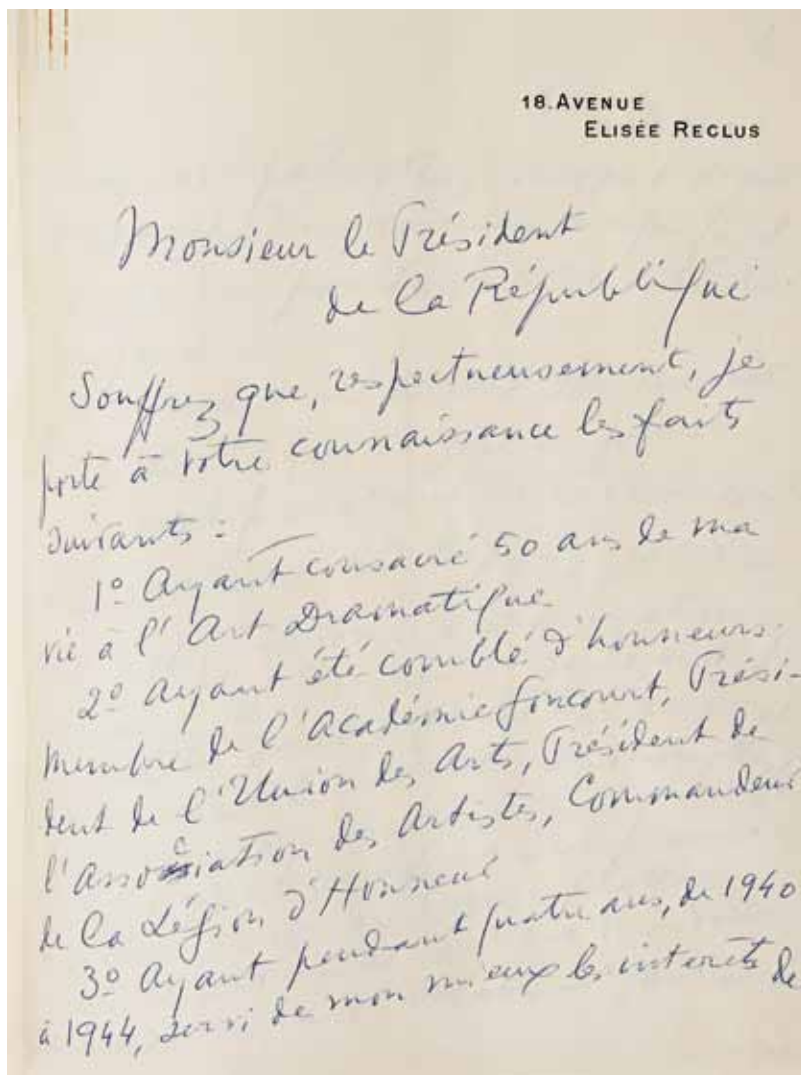 18. AVENUE
ELISÉE RECLUS
Monsieur le Président
de la République
Souffrez que, respectueusement, je
porte à votre connaissance les faits
suivants :
1º Ayant consacré 50 ans de ma
vie à l'Art Dramatique
2º Ayant été comblé d'honneurs.
membre de l'Académie Goncourt, Prési-
dent de l'Union des Arts, Président de
l'Association des Artistes, Commandeur
de la Légion d'Honneur
3º Ayant pendant quatre ans, de 1940
à 1944, servi de mon mieux les intérêts de